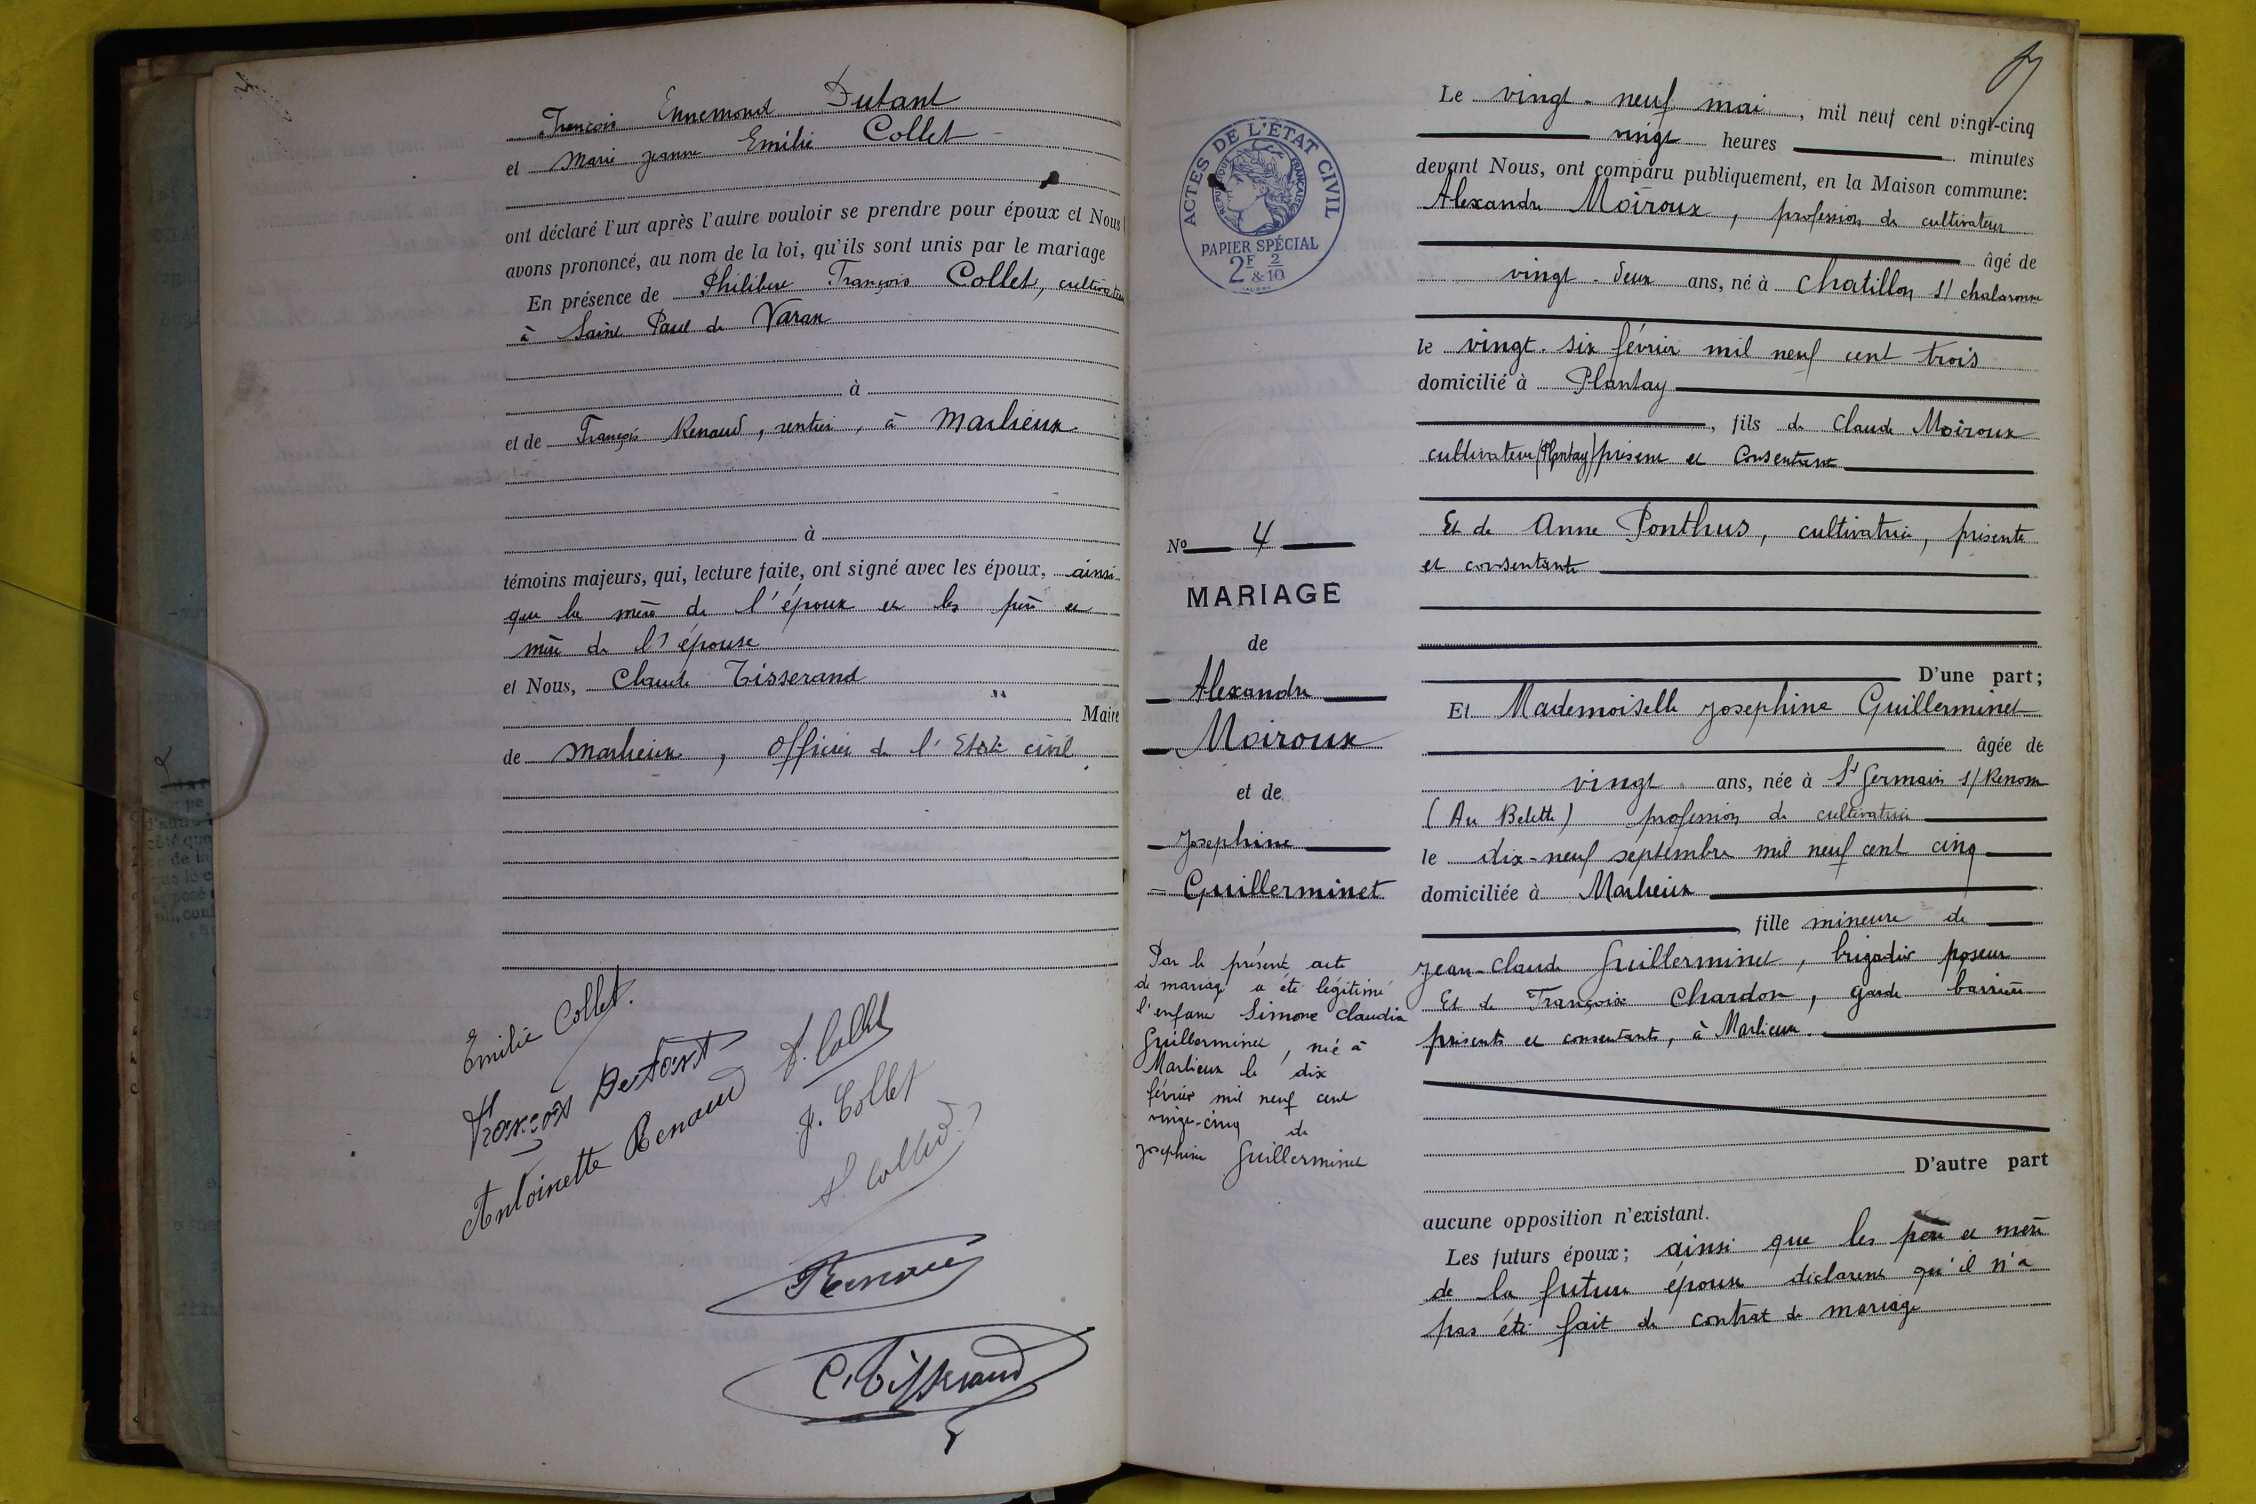 François Ennemond Dutant
et Marie Jeanne Emilie Collet
ont déclaré l'un après l'autre vouloir se prendre pour époux et Nous
avons prononcé, au nom de la loi, qu'ils sont unis par le mariage
En présence de Philibert François Collet, cultivateur
à Saint Paul de Varax
à
et de François Renaud, rentier, à Marlieux
à
témoins majeurs, qui, lecture faite, ont signé avec les époux, ainsi
que la mère de l'époux et les père et
mère de l'épouse
et Nous, Claude Tisserand
Maire
de Marlieux, Officier de l'Etat civil
Emilie Collet.
François Dutant
Antoinette Renaud
Collet
J. Collet
Collet
Renaud
C. Tisserand
ACTES DE L'ÉTAT CIVIL
RÉPUBLIQUE FRANÇAISE
PAPIER SPÉCIAL
2F & 2/10
No 4
MARIAGE
de
Alexandre
Moiroux
et de
Josephine
Guillerminet
Par le présent acte
de mariage a été légitimé
l'enfant Simone Claudia
Guillerminet, née à
Marlieux le dix
février mil neuf cent
vingt-cinq de
Josephine Guillerminet
Le vingt-neuf mai, mil neuf cent vingt-cinq
vingt heures minutes
devant Nous, ont comparu publiquement, en la Maison commune:
Alexandre Moiroux, profession de cultivateur
âgé de
vingt-deux ans, né à Chatillon s/ Chalaronne
le vingt-six février mil neuf cent trois
domicilié à Plantay
, fils de Claude Moiroux
cultivateur (Plantay) présent et consentant
Et de Anne Ponthus, cultivatrice, présente
et consentante
D'une part;
Et Mademoiselle Josephine Guillerminet
âgée de
vingt ans, née à St Germain s/ Renom
(Au Belette) profession de cultivatrice
le dix-neuf septembre mil neuf cent cinq
domiciliée à Marlieux
, fille mineure de
Jean-Claude Guillerminet, brigadier poseur
Et de Françoise Chardon, garde barrière
présents et consentants, à Marlieux.
D'autre part
aucune opposition n'existant.
Les futurs époux; ainsi que les père et mère
de la future épouse déclarent qu'il n'a
pas été fait de contrat de mariage